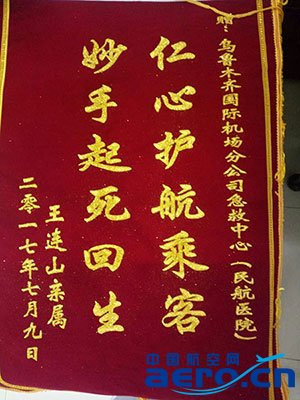 赠:乌鲁木齐国际机场分公司急救中心(民航医院)
仁心护航乘客
妙手起死回生
王连山亲属
二零一七年七月九日
中国航空网
aero.cn